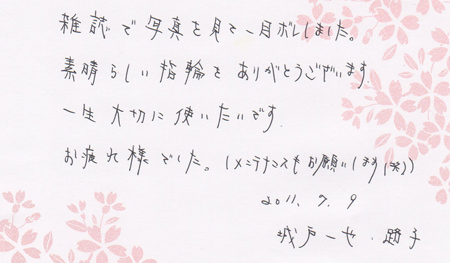 雑誌で写真を見て一目ボレしました。
素晴らしい指輪をありがとうございます。
一生大切に使いたいです。
お疲れ様でした。(メンテナンスもお願いします(笑))
2011.7.9
城戸一也・路子